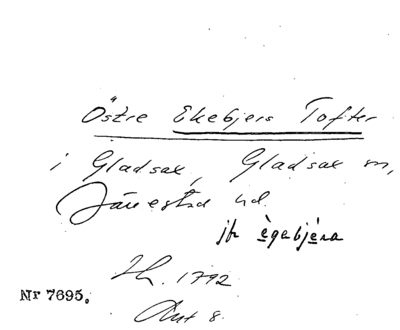 Östre Ekebjers Tofter
i Gladsax, Gladsax sn,
Järrestad hd.
jfr ègabjèra
Sk. 1792
Akt 8.
Nr 7695.